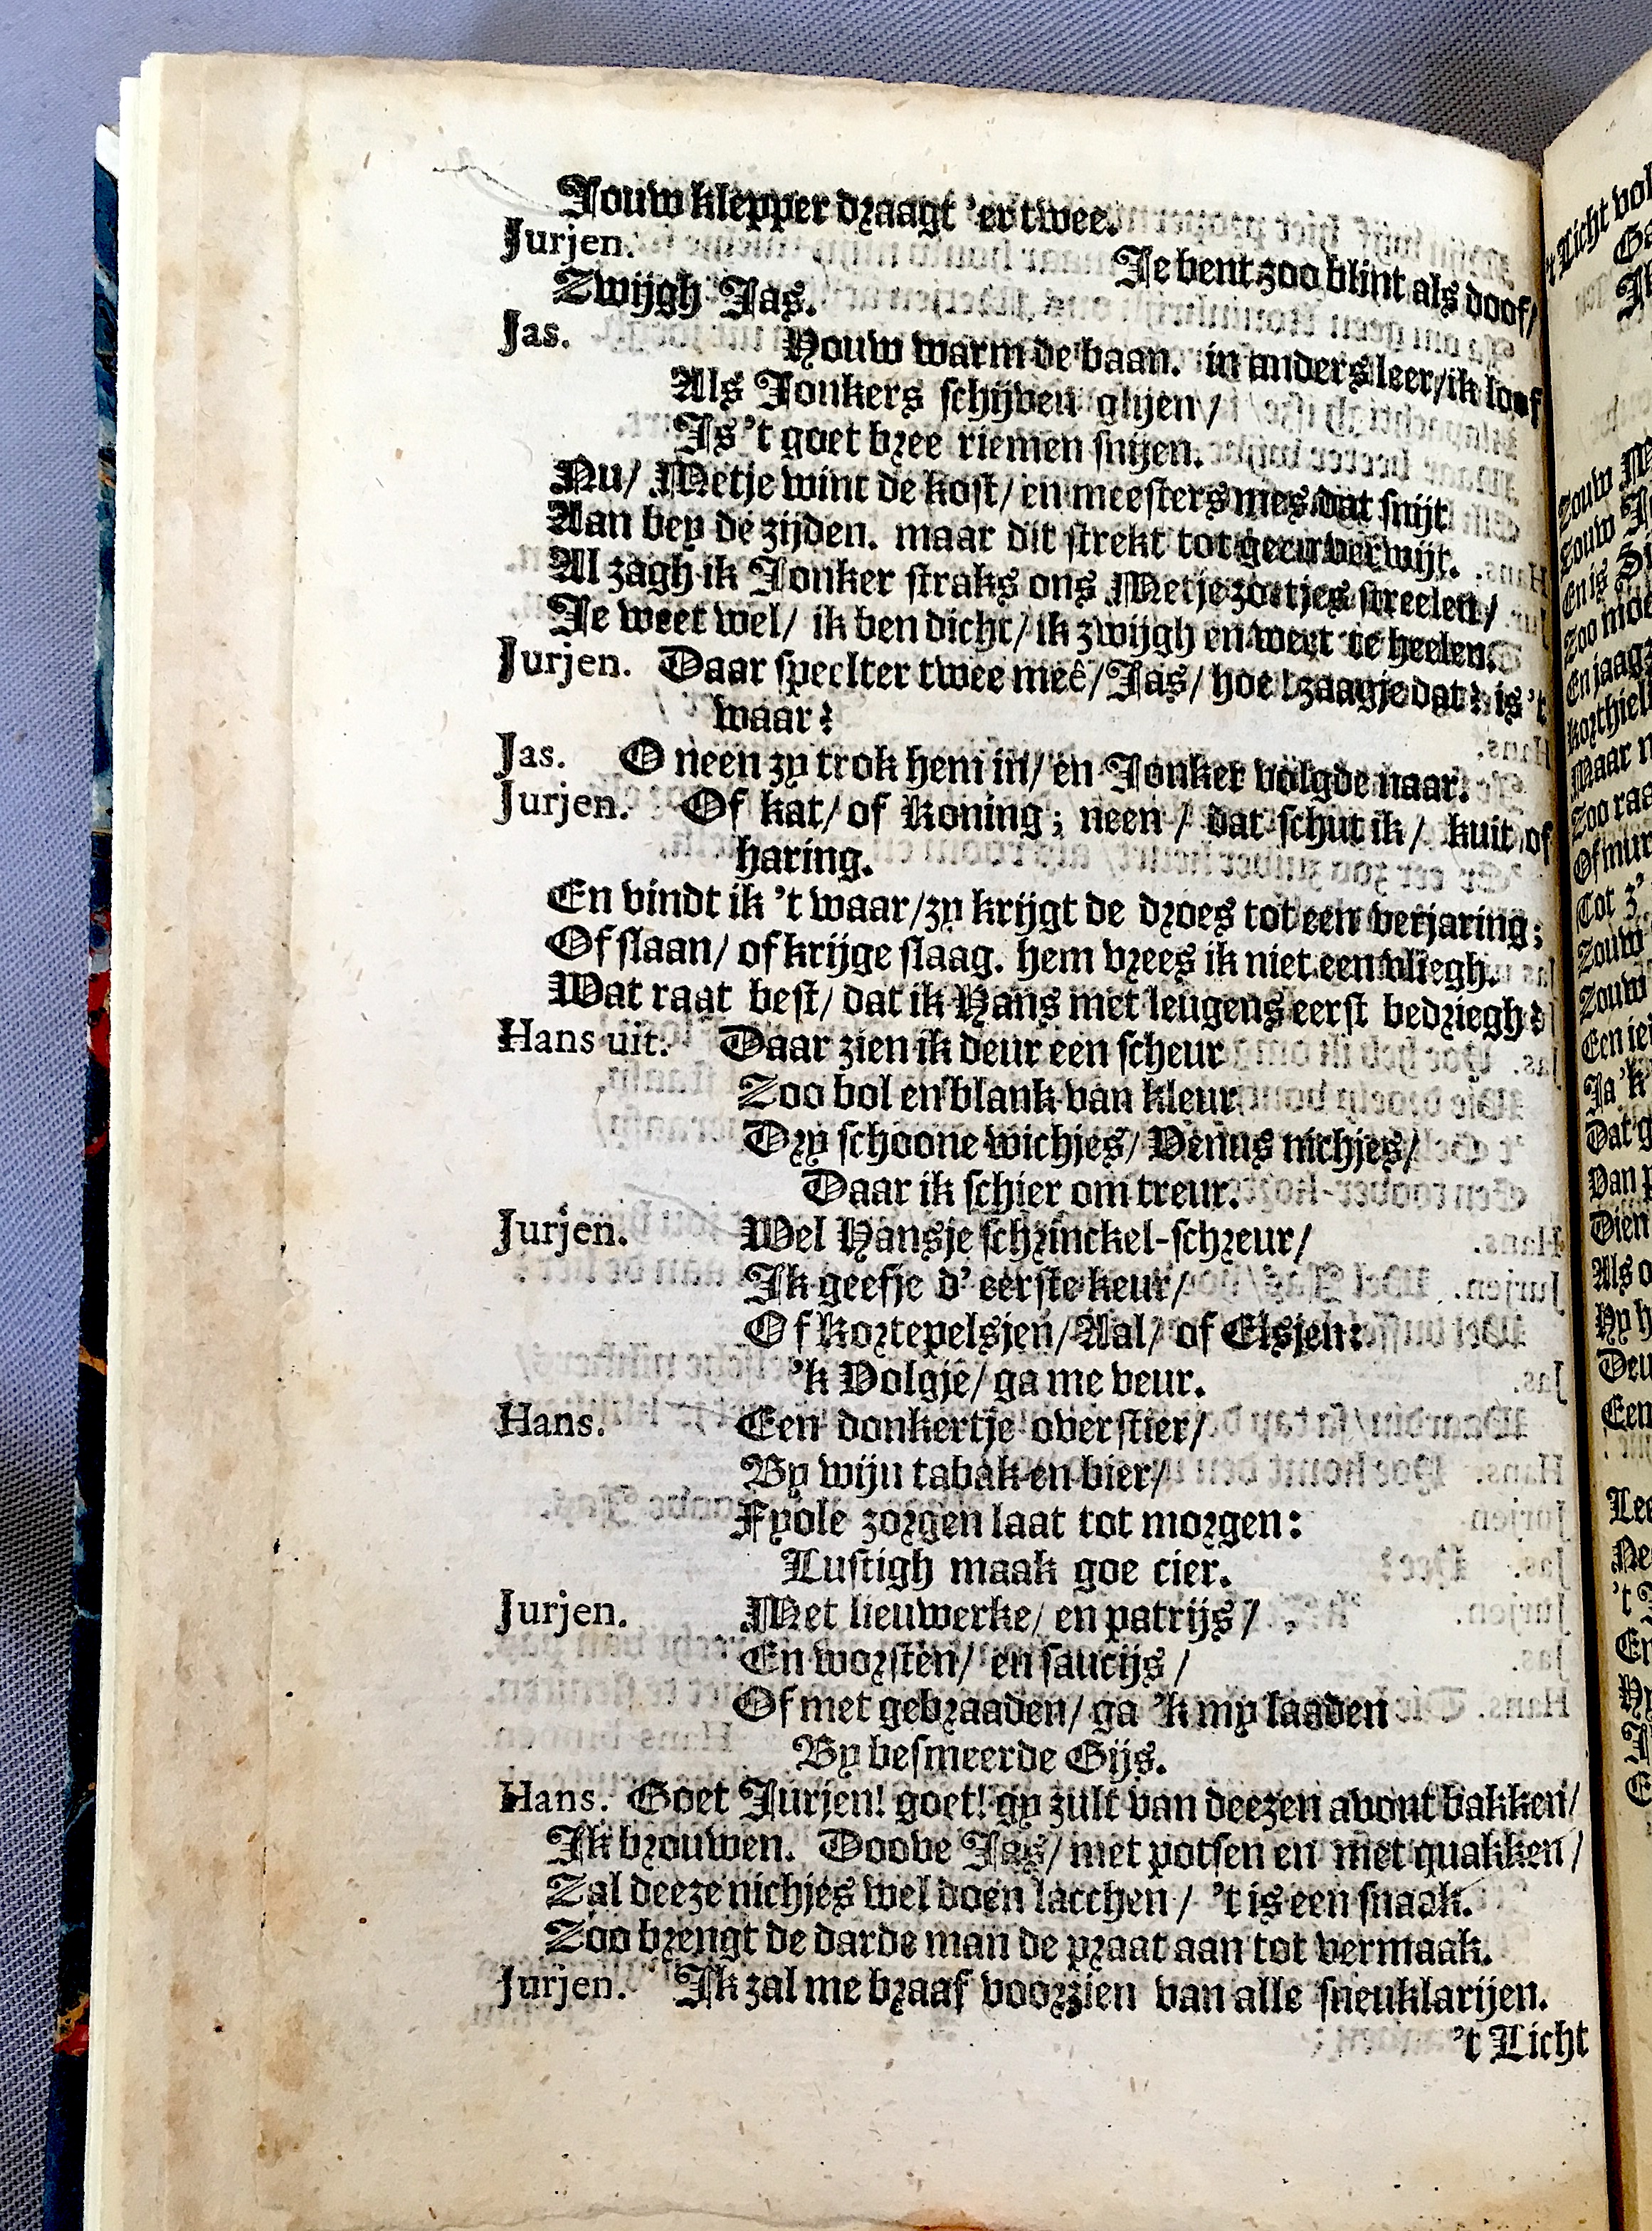 Jouw klepper draagt 'er twee.
Jurjen. Je bent zoo blint als doof/
Zwijgh Jas.
Jas. Houw warm de baan. in anders leer/ik loof
Als Jonkers schijven glyen/
Is 't goet bree riemen snijen.
Nu/ Metje wint de kost/ en meesters mes dat snijt
Aan bey de zijden. maar dit strekt tot geen verwijt.
Al zagh ik Jonker straks ons Metje zoetjes streelen/
Je weet wel/ ik ben dicht/ ik zwijgh en weet te heelen.
Jurjen. Daar speelter twee meê/Jas/ hoe! zaagje dat? is 't
waar?
Jas. O neen zy trok hem in/ en Jonker volgde naar.
Jurjen. Of kat/ of Koning; neen/ dat schut ik/ kuit of
haring.
En vindt ik 't waar/zy krijgt de droes tot een verjaring;
Of slaan/ of krijge slaag. hem vrees ik niet een vliegh.
Wat raat best/ dat ik Hans met leugens eerst bedriegh?
Hans uit. Daar zien ik deur een scheur
Zoo bol en blank van kleur
Dry schoone wichjes/ Venus nichjes/
Daar ik schier om treur.
Jurjen. Wel Hansje schrinckel-schreur/
Ik geefje d' eerste keur/
Of Kortepelsjen/Aal/ of Elsjen:
'k Volgje/ ga me veur.
Hans. Een donkertje overstier/
By wijn tabak en bier/
Fyole zorgen laat tot morgen:
Lustigh maak goe cier.
Jurjen. Met lieuwerke/ en patrijs/
En worsten/ en saucijs/
Of met gebraaden/ ga 'k my laaden
By besmeerde Gijs.
Hans. Goet Jurjen! goet! gy zult van deezen avont bakken/
Ik brouwen. Doove Jas/ met potsen en met quakken/
Zal deeze nichjes wel doen lacchen/ 't is een snaak.
Zoo brengt de darde man de praat aan tot vermaak.
Jurjen. Ik zal me braaf voorzien van alle sneuklarijen.
't Licht